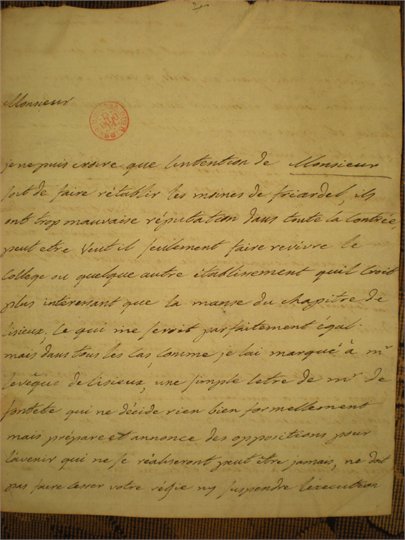 Monsieur
je ne puis croire que lintention de Monsieur
soit de faire rétablir les moines de friardel, ils
ont trop mauvaise réputation dans toute la Contrée
peut etre Veut il seulement faire revivre le
College ou quelque autre établissement quil croit
plus interessant que la manse du chapitre de
lisieux, ce qui me seroit parfaitement égal.
mais dans tous les cas, Comme je lai marqué à mr
levêque de lisieux, une simple letre de mr de
qui ne décide rien bien formellement
mais prépare et annonce des oppositions pour
lavenir qui ne se réaliseront peut être jamais, ne doit
pas faire cesser votre régie ny suspendre lexecution